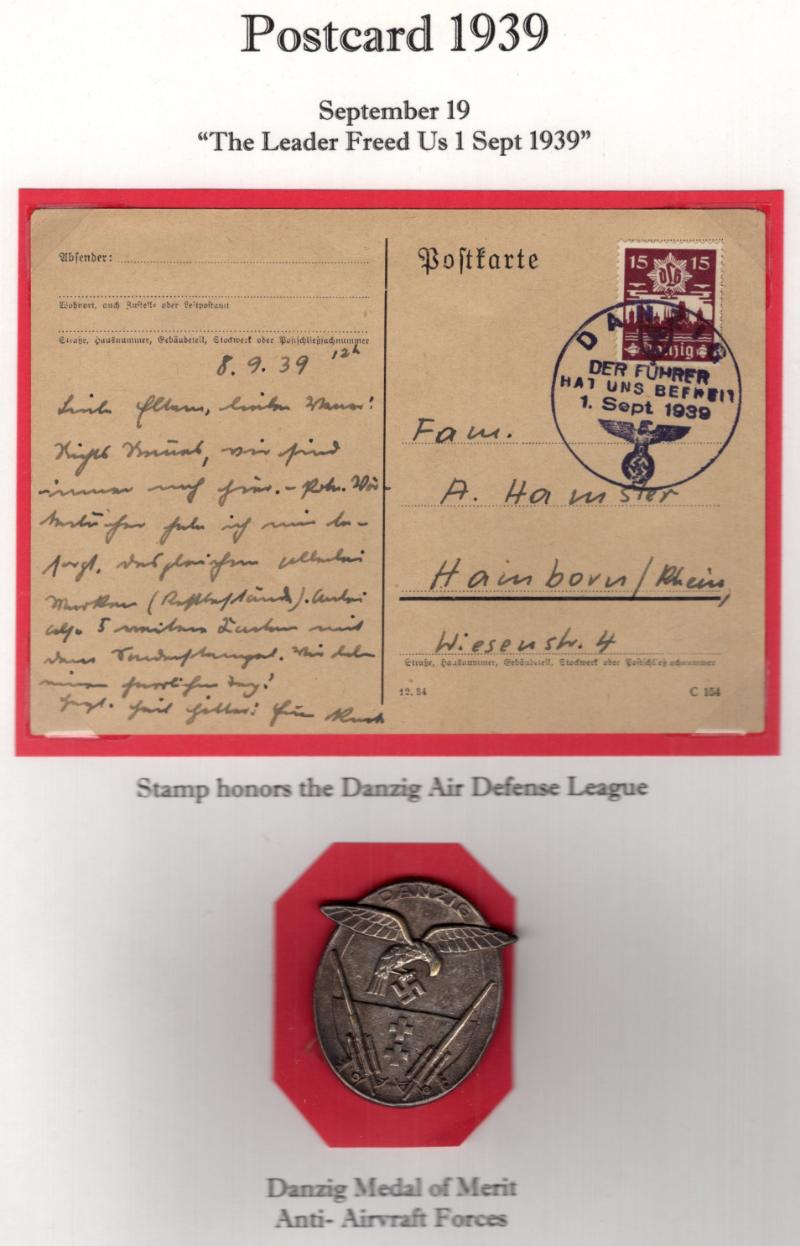 Postcard 1939
September 19
“The Leader Freed Us 1 Sept 1939”
Absender:
Wohnort, auch Zustell- oder Leitpostamt
Straße, Hausnummer, Gebäudeteil, Stockwerk oder Postschließfachnummer
8.9.39 12h
Liebe Eltern, lieber Werner!
Nichts Neues, wir sind
immer noch hier. –
ich mir be-
sorgt, desgleichen allerlei
Marken (Restbestände). Anbei
also 5 weitere Karten mit
dem Sonderstempel. Wir haben
einen herrlichen Tag!
Heil Hitler! Euer
Postkarte
15 15
Danzig
DANZIG
DER FÜHRER
HAT UNS BEFREIT
1. Sept 1939
Fam.
A. Hamster
Hamborn/Rhein,
Wiesenstr. 4
Straße, Hausnummer, Gebäudeteil, Stockwerk oder Postschließfachnummer
12.34
C 154
Stamp honors the Danzig Air Defense League
DANZIG
Danzig Medal of Merit
Anti- Airvraft Forces